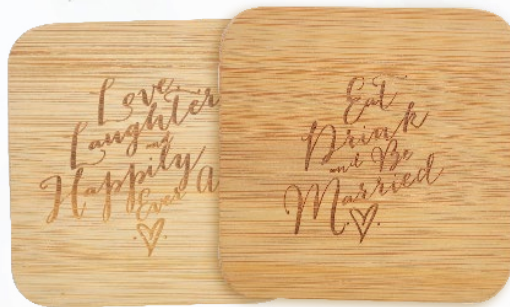 Love
Laughter
and
Happily
Ever A
Eat
Drink
and Be
Married